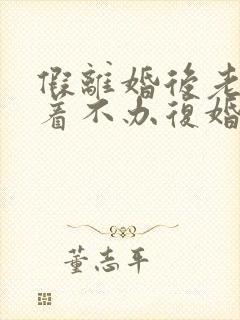 假離婚後老
着不办復婚
董志平